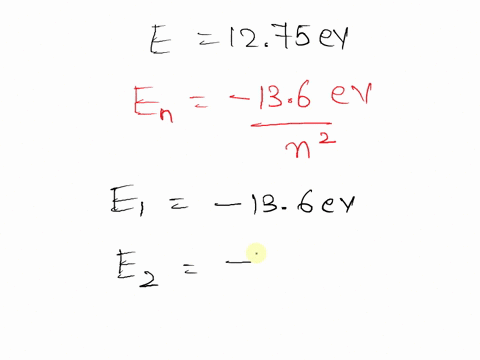 E = 12.75 ev
En = -13.6 ev / n²
E1 = -13.6 ev
E2 = -